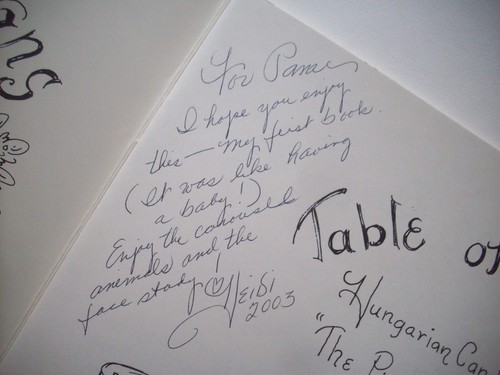 ans
For Pam
I hope you enjoy
this — my first book.
(It was like having
a baby!)
Enjoy the carousel
animals and the
face study!
Heidi
2003
Table of
Hungarian Can
"The P